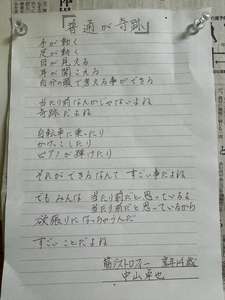 「普通が奇跡」
手が動く
足が動く
目が見える
耳が聞こえる
自分の頭で考える事ができる
当たり前なんかじゃないよね
奇跡だよね
自転車に乗ったり
かけっこしたり
ピアノが弾けたり
それができるなんて すごい事だよね
でも みんなは 当たり前だと思っているよ
当たり前だと思っているから
欲張りになっちゃうんだ
すごいことだよね
筋ジストロフィー 享年14歳
中山卓也